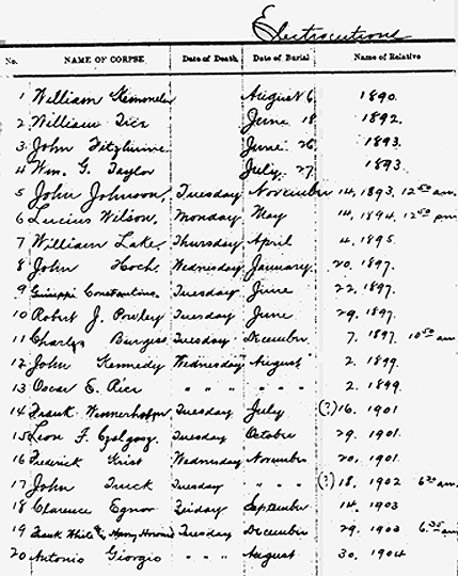 Electrocutions
No. NAME OF CORPSE. Date of Death. Date of Burial Name of Relative
1 William Kemmeler August 6 1890.
2 William Tice June 18 1892.
3 John Fitzhume June 26 1893.
4 Wm. G. Taylor July 27 1893
5 John Johnson, Tuesday November 14, 1893, 12 50 am.
6 Lucius Wilson, Monday May 14, 1894, 12 50 pm
7 William Lake, Thursday April 4, 1895.
8 John Hoch, Wednesday January 20, 1897.
9 Guiseppi Constantino. Tuesday June 22, 1897.
10 Robert J. Powley Tuesday June 29, 1897.
11 Charles Burgess Tuesday December 7, 1897 10 50 am
12 John Kennedy Wednesday August 2, 1899.
13 Oscar E. Rice " " " " " " 2, 1899.
14 Frank Wennerholm Tuesday July (?) 16, 1901
15 Leon F. Czolgosz. Tuesday October 29, 1901.
16 Frederick Krist Wednesday November 20, 1901
17 John Truck Tuesday " " " (?) 18, 1902 6 20 am.
18 Clarence Egnor Friday September 14, 1903
19 Frank White & Harry Howard Tuesday December 29, 1903 6.35 am
20 Antonio Giorgio " " " August 30, 1904